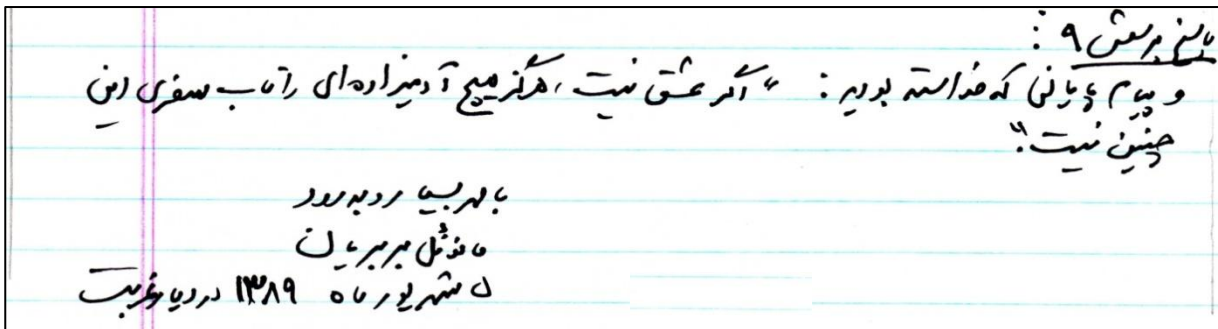 پاسخ پرسش ۹ :
و پیام پایانی که خواسته بودید : " اگر عشق نیست ، هرگز هیچ آدمیزاده‌ای را تاب سفری این
چنین نیست . "
با مهر بسیار و بدرود
مانوئل بربریان
۵ شهریور ماه ۱۳۸۹ در دیار غربت